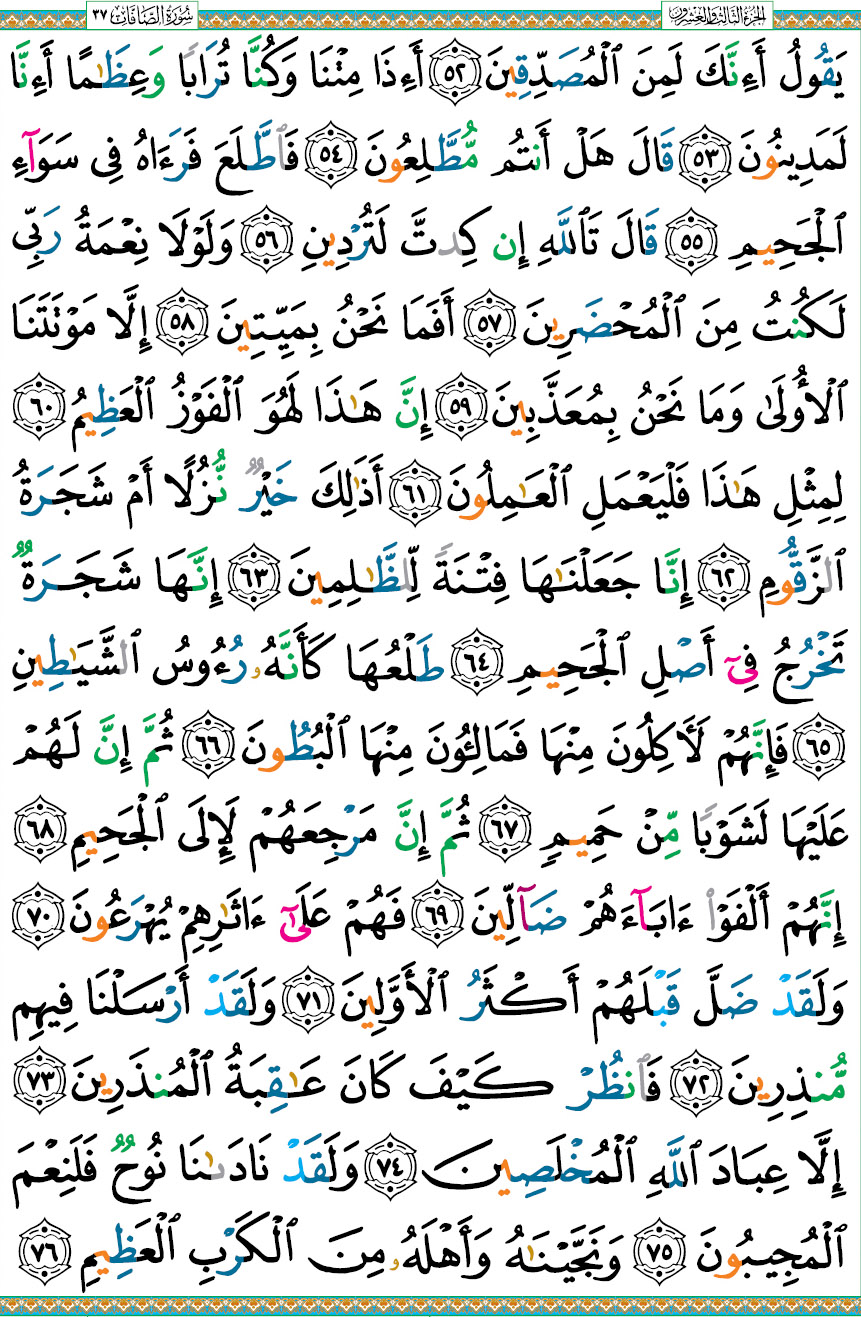 الجزء الثالث والعشرون سورة الصافات ٣٧
يَقُولُ أَءِنَّكَ لَمِنَ ٱلْمُصَدِّقِينَ ٥٢ أَءِذَا مِتْنَا وَكُنَّا تُرَابًا وَعِظَٰمًا أَءِنَّا
لَمَدِينُونَ ٥٣ قَالَ هَلْ أَنتُم مُّطَّلِعُونَ ٥٤ فَٱطَّلَعَ فَرَءَاهُ فِى سَوَآءِ
ٱلْجَحِيمِ ٥٥ قَالَ تَٱللَّهِ إِن كِدتَّ لَتُرْدِينِ ٥٦ وَلَوْلَا نِعْمَةُ رَبِّى
لَكُنتُ مِنَ ٱلْمُحْضَرِينَ ٥٧ أَفَمَا نَحْنُ بِمَيِّتِينَ ٥٨ إِلَّا مَوْتَتَنَا
ٱلْأُولَىٰ وَمَا نَحْنُ بِمُعَذَّبِينَ ٥٩ إِنَّ هَٰذَا لَهُوَ ٱلْفَوْزُ ٱلْعَظِيمُ ٦٠
لِمِثْلِ هَٰذَا فَلْيَعْمَلِ ٱلْعَٰمِلُونَ ٦١ أَذَٰلِكَ خَيْرٌ نُّزُلًا أَمْ شَجَرَةُ
ٱلزَّقُّومِ ٦٢ إِنَّا جَعَلْنَٰهَا فِتْنَةً لِّلظَّٰلِمِينَ ٦٣ إِنَّهَا شَجَرَةٌ
تَخْرُجُ فِىٓ أَصْلِ ٱلْجَحِيمِ ٦٤ طَلْعُهَا كَأَنَّهُۥ رُءُوسُ ٱلشَّيَٰطِينِ
٦٥ فَإِنَّهُمْ لَءَاكِلُونَ مِنْهَا فَمَالِـُٔونَ مِنْهَا ٱلْبُطُونَ ٦٦ ثُمَّ إِنَّ لَهُمْ
عَلَيْهَا لَشَوْبًا مِّنْ حَمِيمٍ ٦٧ ثُمَّ إِنَّ مَرْجِعَهُمْ لَإِلَى ٱلْجَحِيمِ ٦٨
إِنَّهُمْ أَلْفَوْا۟ ءَابَآءَهُمْ ضَآلِّينَ ٦٩ فَهُمْ عَلَىٰٓ ءَاثَٰرِهِمْ يُهْرَعُونَ ٧٠
وَلَقَدْ ضَلَّ قَبْلَهُمْ أَكْثَرُ ٱلْأَوَّلِينَ ٧١ وَلَقَدْ أَرْسَلْنَا فِيهِم
مُّنذِرِينَ ٧٢ فَٱنظُرْ كَيْفَ كَانَ عَٰقِبَةُ ٱلْمُنذَرِينَ ٧٣
إِلَّا عِبَادَ ٱللَّهِ ٱلْمُخْلَصِينَ ٧٤ وَلَقَدْ نَادَىٰنَا نُوحٌ فَلَنِعْمَ
ٱلْمُجِيبُونَ ٧٥ وَنَجَّيْنَٰهُ وَأَهْلَهُۥ مِنَ ٱلْكَرْبِ ٱلْعَظِيمِ ٧٦